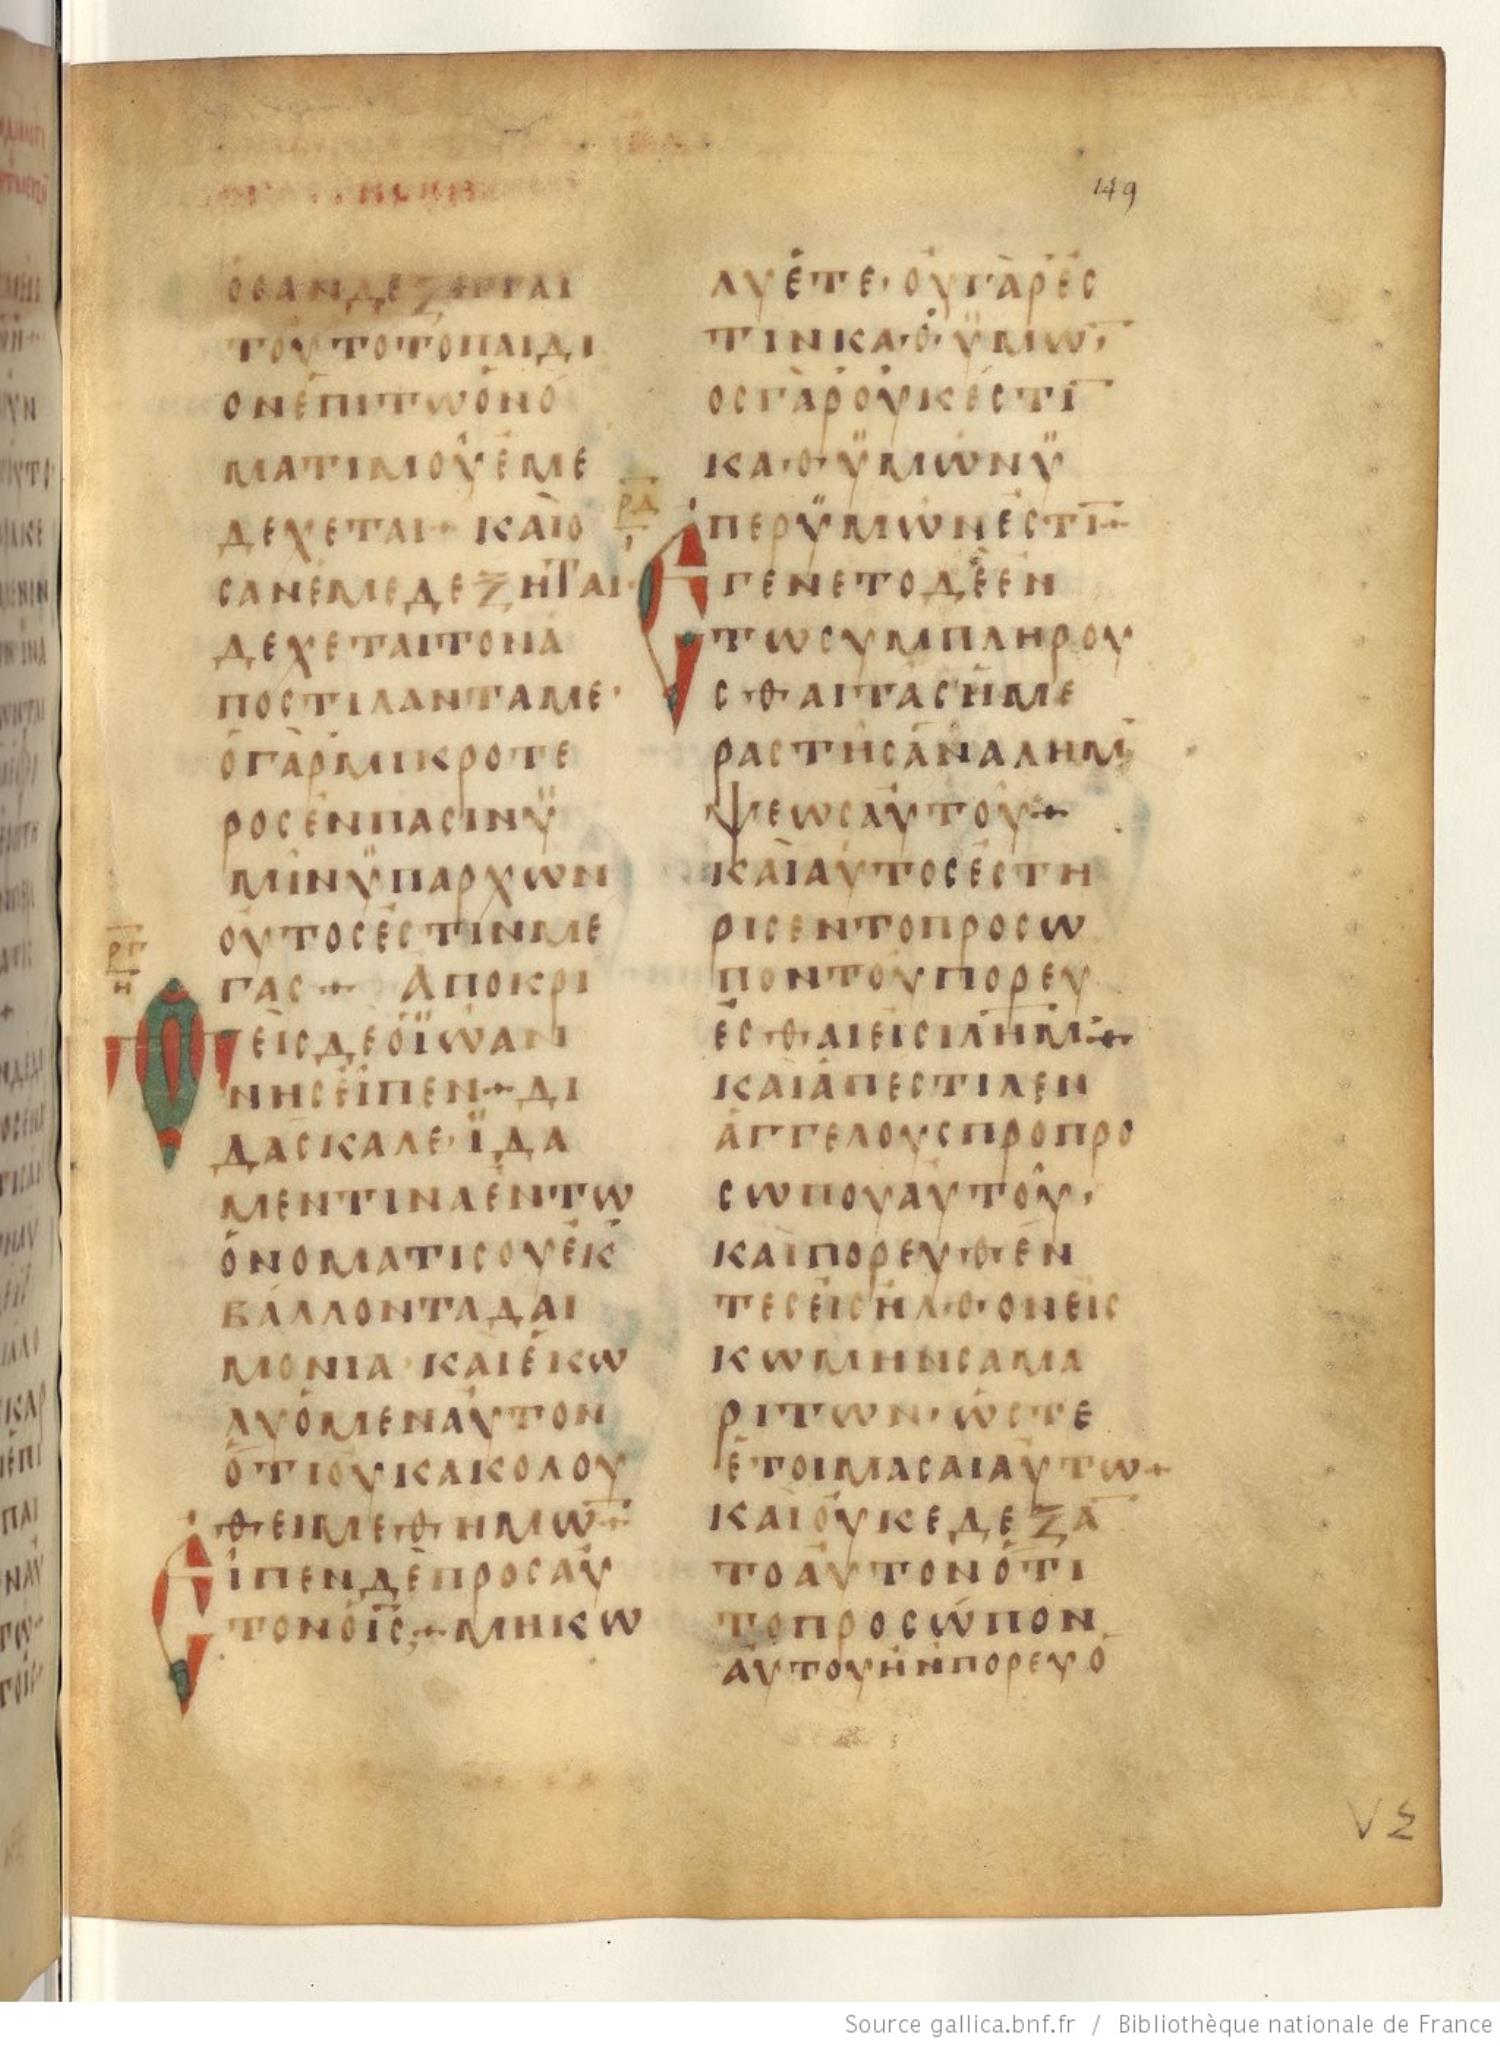 149
ὁεανδεξεηται
τουτοτοπαιδι
ονεπιτωονο
ματιμουεμε
δεχεται+ καιο
ρδ
σανεμεδεξηται·
δεχεταιτονα
ποστιλανταμε·
ογαρμικροτε
ροσενπασινϋ
μινϋπαρχων
ουτοσεστινμε
ργ
η
γασ+ Αποκρι
θεισδεοϊωαν
νησειπεν+δι
δασκαλε·ϊδα
μεντιναεντω
ονοματισουεκ
βαλλονταδαι
μονια·καιεκω
λυομεναυτον
οτιουκακολου
θειμεθημω̅+
Ειπενδεπροσαυ
τονοι̅σ̅+μηκω
λυετε·ουγαρεσ
τινκαθϋμω̅·
οσγαρουκεστι̅
καθϋμωνϋ
περϋμωνεστι̅+
Εγενετοδεεν
τωσυμπληρου
σθαιτασημε
ραστησαναλημ
ψεωσαυτου+
καιαυτοσεστη
ρισεντοπροσω
ποντουπορευ
εσθαιεισιλ̅η̅μ̅+
καιαπεστιλεν
αγγελουσπροπρο
σωπουαυτου·
καιπορευθεν
τεσεισηλθονεισ
κωμηνσαμα
ριτων·ωστε
ετοιμασαιαυτω+
καιουκεδεξα̅
τοαυτονοτι
τοπροσωπον
αυτουηνπορευο
V2
Source gallica.bnf.fr / Bibliothèque nationale de France